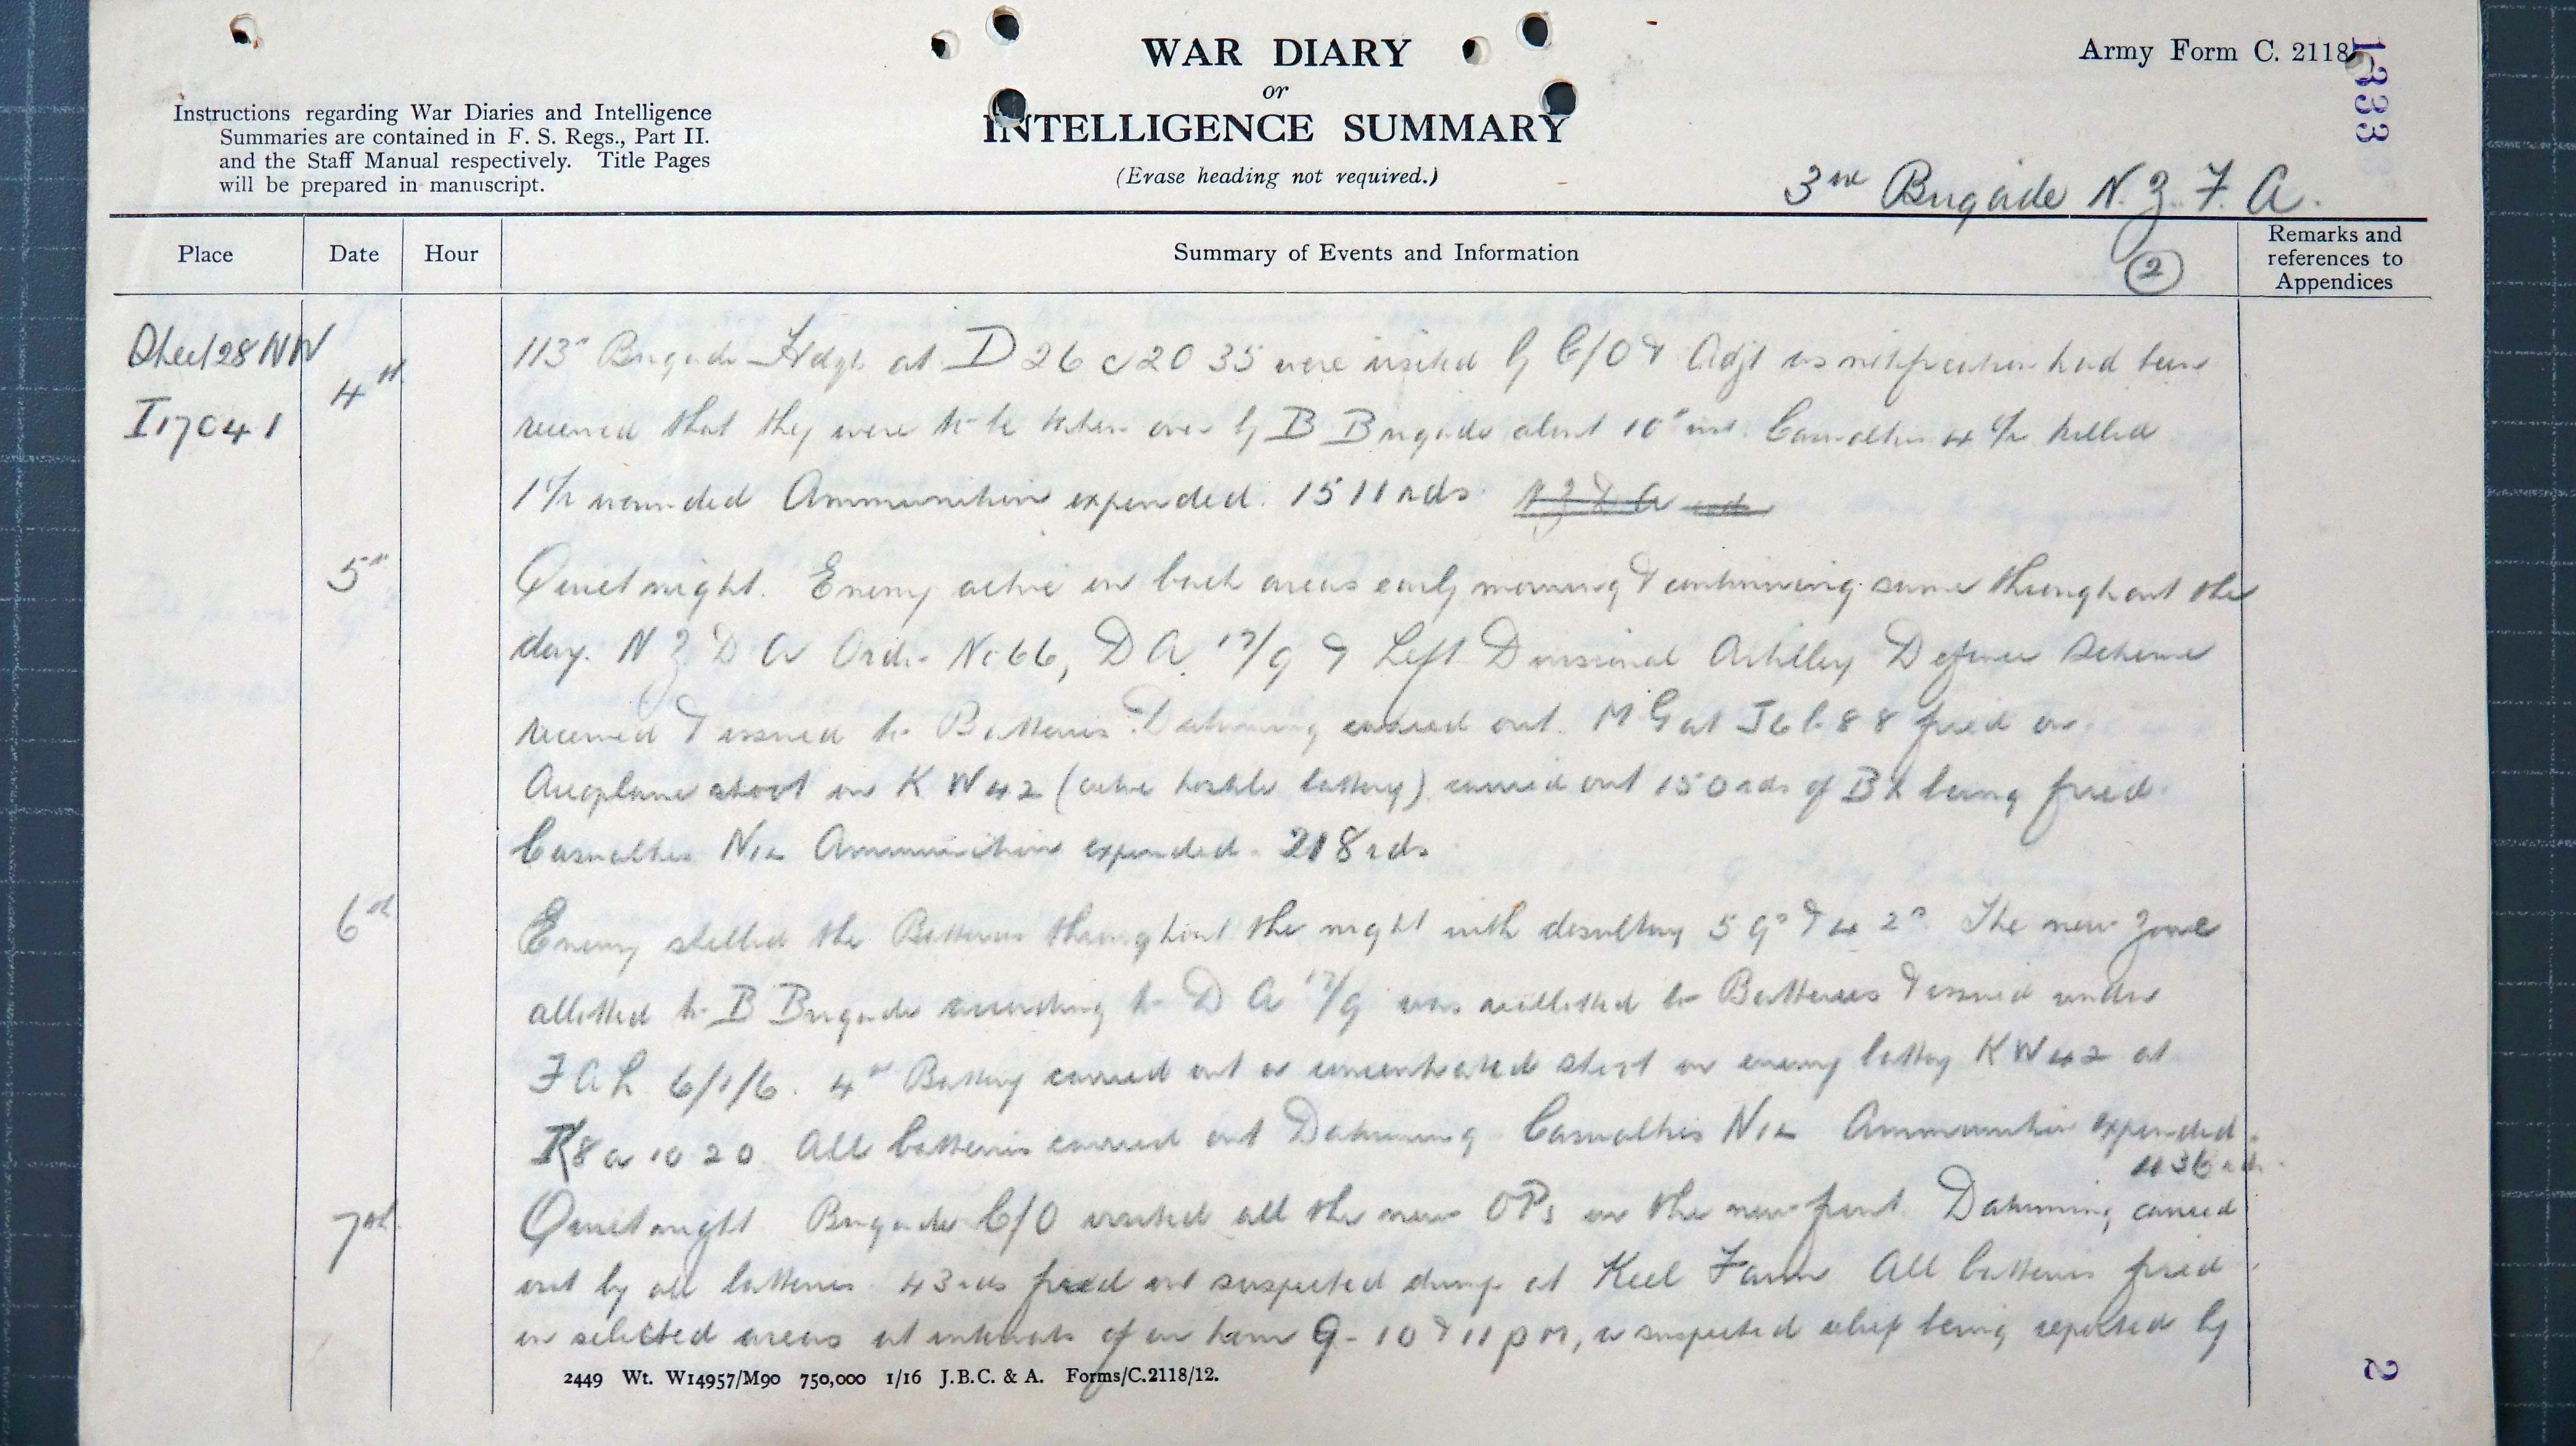 WAR DIARY
or
INTELLIGENCE SUMMARY
(Erase heading not required.)
Army Form C. 2118
1333
Instructions regarding War Diaries and Intelligence
Summaries are contained in F. S. Regs., Part II.
and the Staff Manual respectively. Title Pages
will be prepared in manuscript.
3rd Brigade N. Z. F. A.
Place
Date
Hour
Summary of Events and Information
2
Remarks and
references to
Appendices
Sheet 28 NW
I 17 0 4 1
4th
113th Brigade Hdqts at D 26 c 20 35 were visited by C/O & Adjt as notification had been
received that they were to be taken over by B Brigade about 10th inst. Casualties 4 O/R killed
1 O/R wounded Ammunition expended. 1511 rds. N Z D A
5th
Quiet night. Enemy active on back areas early morning & continuing same throughout the
day. N Z D A Order No 66, D A 17/9 & Left Divisional Artillery Defence Scheme
received & issued to Batteries. Datuming carried out. M G at J 6 b 8 8 fired on.
Aeroplane shoot on K W 42 (active hostile battery) carried out 150 rds of BX being fired.
Casualties Nil Ammunition expended. 218 rds
6th
Enemy shelled the Batteries throughout the night with desultory 5 9s & 4 2s The new zone
allotted to B Brigade according to D A 17/9 was reallotted to Batteries & issued under
F A L 6/1/6. 4th Battery carried out a concentrated shoot on enemy battery K W 42 at
K 8 a 10 20 All batteries carried out Datuming Casualties Nil Ammunition expended.
rds.
7th
Quiet night Brigade C/O visited all the new OPs on the new front. Datuming carried
out by all batteries 43 rds fired on suspected dump at Keel Farm All batteries fired
on selected areas at intervals of an hour 9 - 10 & 11 pm, a suspected relief being reported by
2449 Wt. W14957/M90 750,000 1/16 J.B.C. & A. Forms/C.2118/12.
2